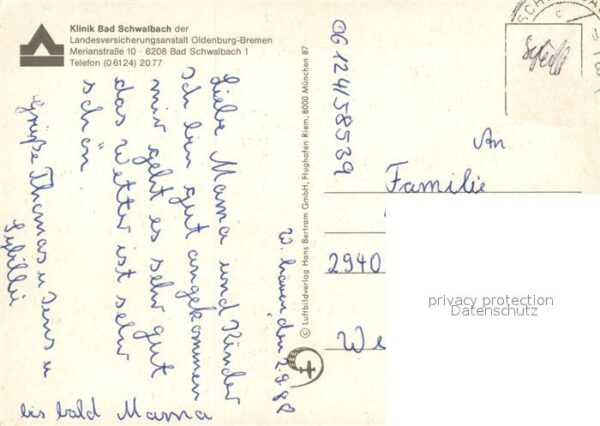 Klinik Bad Schwalbach der
Landesversicherungsanstalt Oldenburg-Bremen
Merianstraße 10 · 6208 Bad Schwalbach 1
Telefon (0 61 24) 20 77
Liebe Mama und Kinder
Ich bin gut angekommen
mir geht es sehr gut
das Wetter ist sehr
schön.
Grüße Thomas u Jens u
bis bald Mama
© Luftbildverlag Hans Bertram GmbH, Flughafen Riem, 8000 München 87
06124/58539
An
Familie
2940
privacy protection
Datenschutz